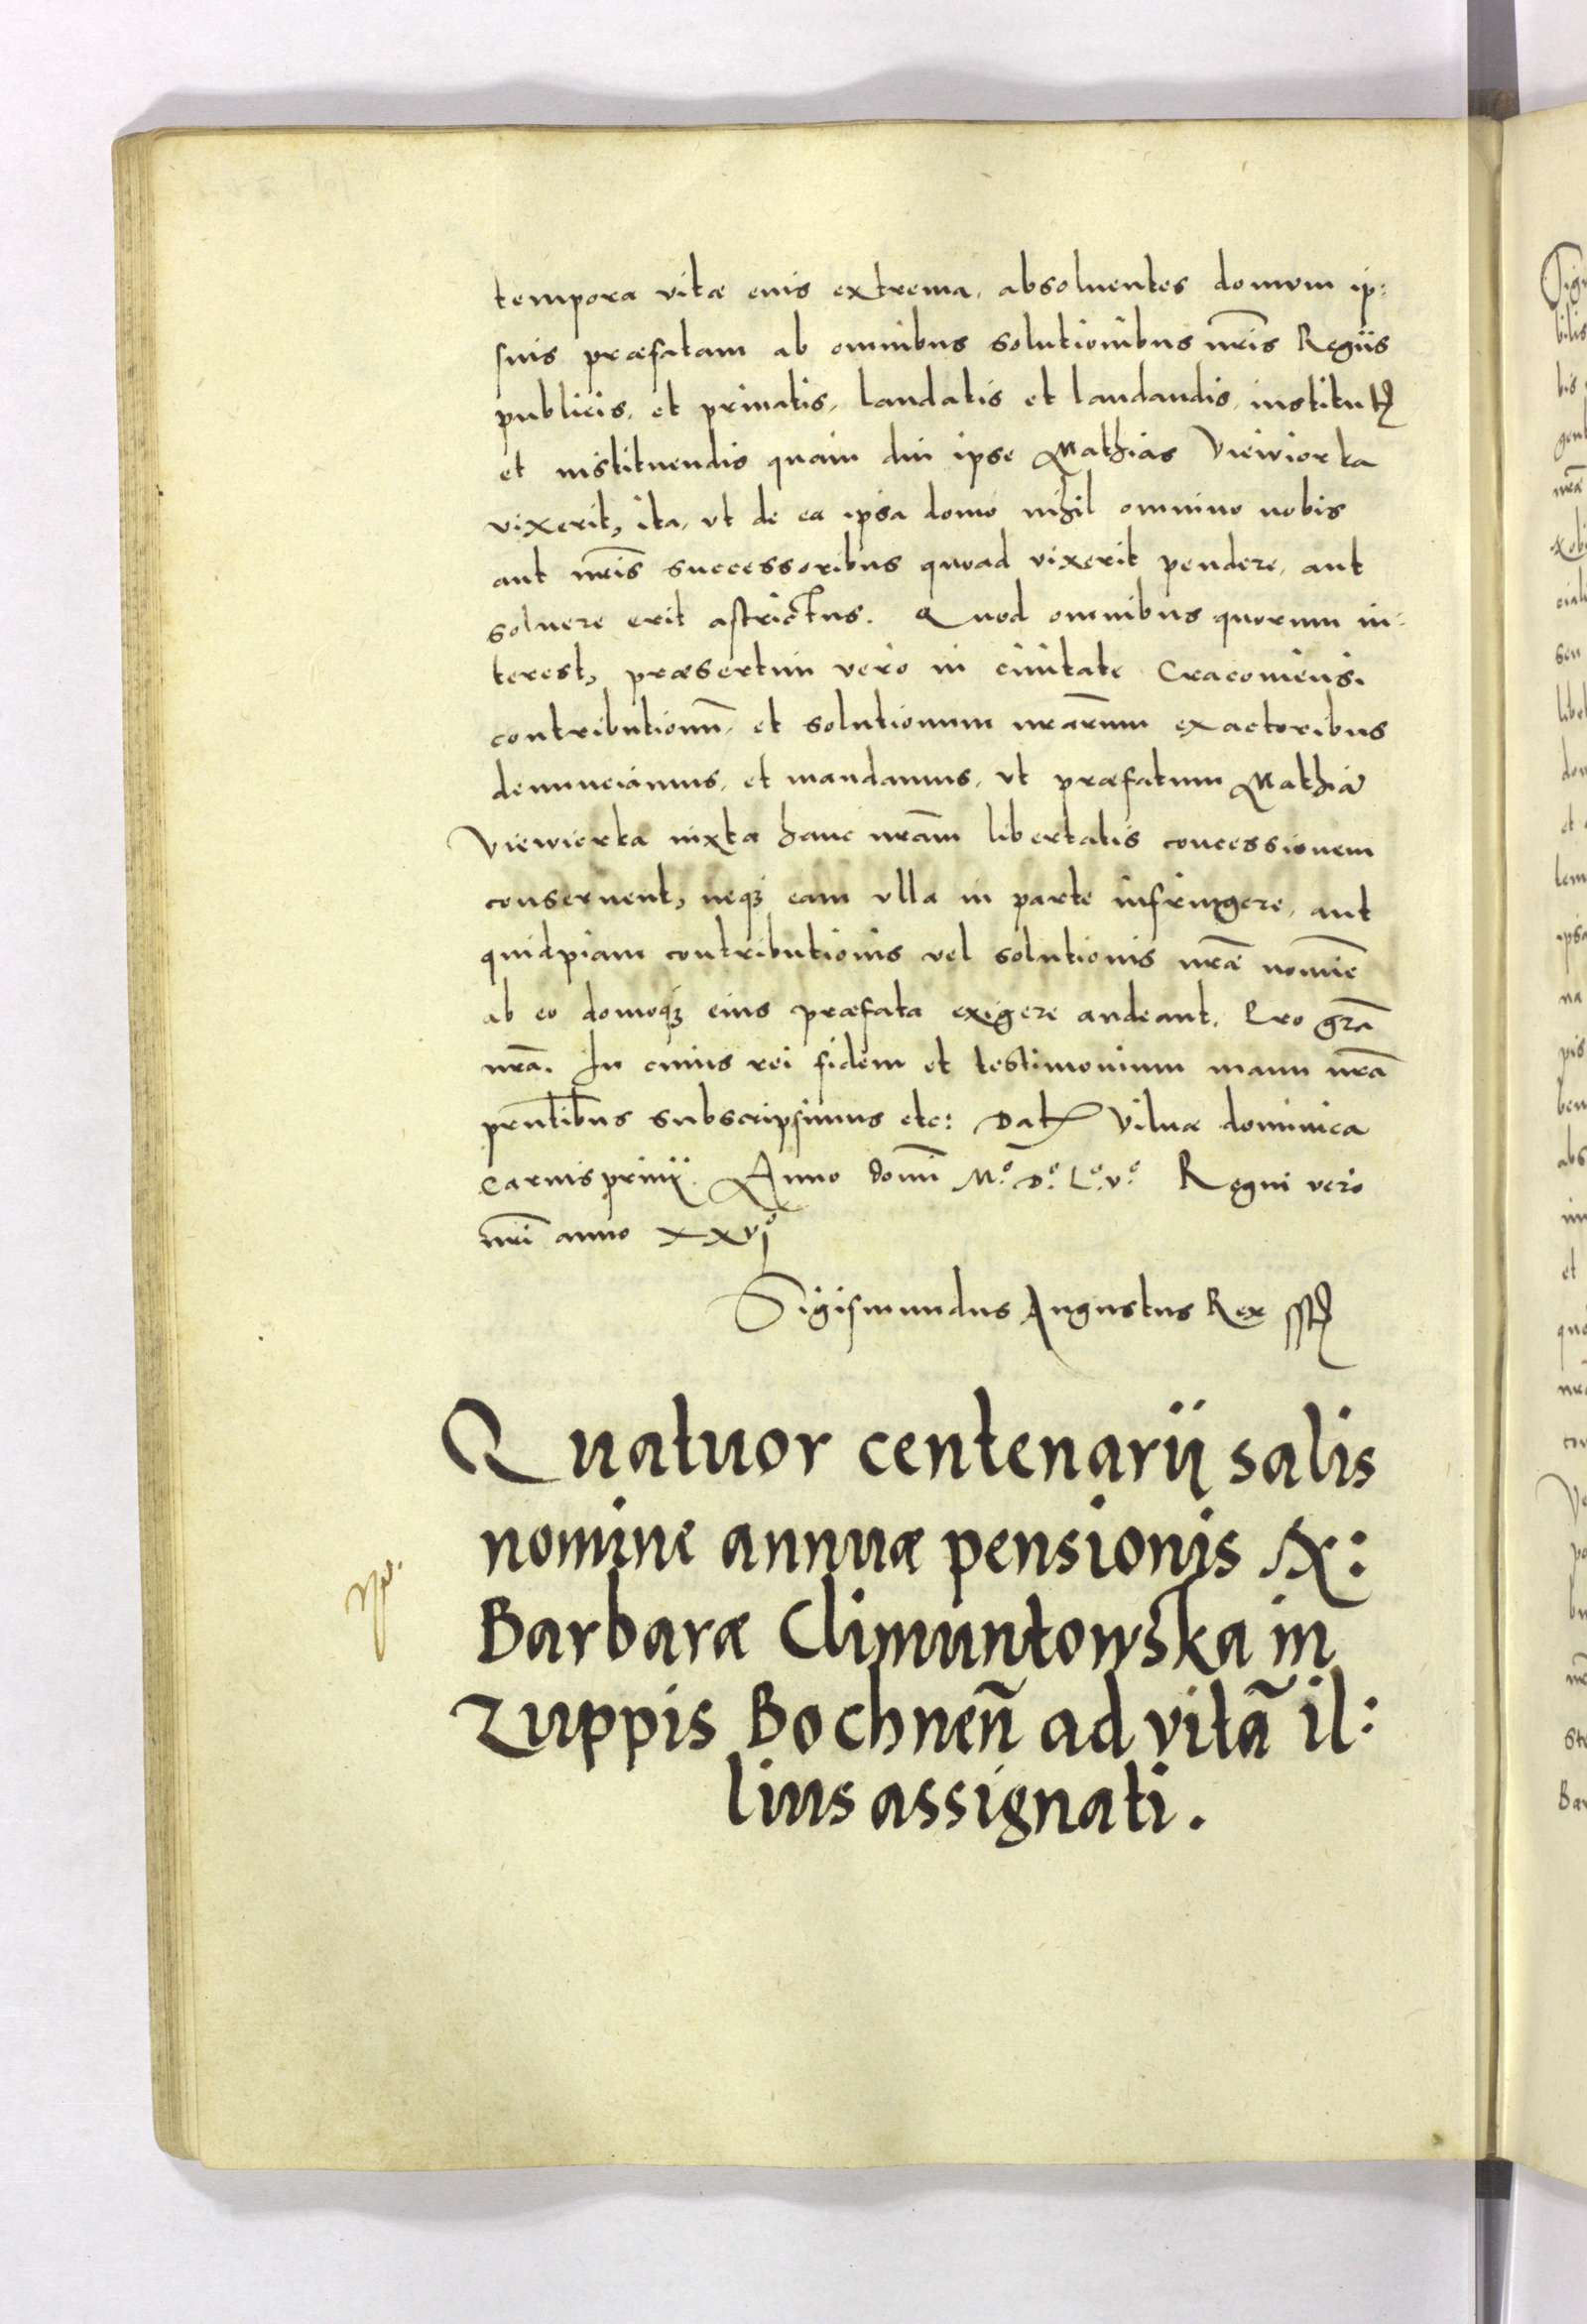 tempora vitæ eius extrema, absoluentes domum ip:
suis præfatam ab omnibus solutionibus nr̃is Regiis
publicis, et priuatis, laudatis et laudandis, institutꝭ
et instituendis quam diu ipse Mathias Viewiorka
vixerit, ita, vt de ea ipsa domo nihil omnino nobis
aut nr̃is successoribus quoad vixerit pendere, aut
soluere erit astrictus. Quod omnibus quorum in-
terest, præsertim vero in ciuitate Cracouiensi
contributionũ, et solutionum nrãrum exactoribus
denunciamus, et mandamus, vt præfatum Mathiã
Viewiorka iuxta hanc nrãm libertatis concessionem
conseruent, neqȝ eam vlla in parte infringere, aut
quidpiam contributionis vel solutionis nrãe nomiẽ
ab eo domoqȝ eius præfata exigere audeant. Pro grã
nrã. In cuius rei fidem et testimonium manu nrã
pñtibus subscripsimus etc: Datꝭ Vilnæ dominica
Carnispriuij. Anno domĩ M.º D.º L.º v.º Regni vero
nrĩ anno xxvjº
Sigismundus Augustus Rex sstꝭ
Quatuor centenarij salis
nomine annuæ pensionis Mx:
Barbaræ Climuntowska in
Zuppis Bochneñ ad vitã il:
lius assignati.